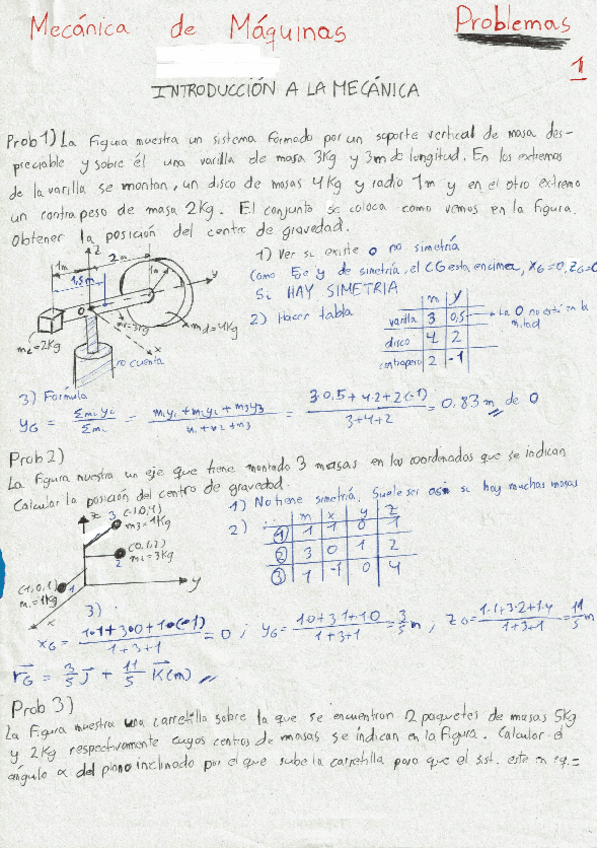 Mecánica de Máquinas Problemas
1
INTRODUCCIÓN A LA MECÁNICA
Prob 1) La Figura muestra un sistema formado por un soporte vertical de masa des-
preciable y sobre él una varilla de masa 3Kg y 3m de longitud. En los extremos
de la varilla se montan, un disco de masas 4Kg y radio 1m y en el otro extremo
un contrapeso de masa 2Kg. El conjunto se coloca como vemos en la figura.
Obtener la posición del centro de gravedad.
1) Ver si existe o no simetría
Como Eje y de simetría, el CG esta encima, XG=0, ZG=0
Si HAY SIMETRIA
2) Hacer tabla
m y
varilla 3 0,5 → La O no está en la mitad
disco 4 2
contrapeso 2 -1
z
2m
1m
1,5m
1m
y
O
mv=3Kg
md=4Kg
mc=2Kg
x
no cuenta
3) Fórmula
yG = Σmi yi / Σmi = m1y1 + m2y2 + m3y3 / m1+m2+m3 = 3·0,5+4·2+2(-1) / 3+4+2 = 0,83m de O
Prob 2)
La figura muestra un eje que tiene montado 3 masas en las coordenadas que se indican
Calcular la posición del centro de gravedad.
1) No tiene simetría. Suele ser así si hay muchas masas
2)
m x y z
1 1 1 0 1
2 3 0 1 2
3 1 -1 0 4
z
3 (-1,0,4)
m3=1Kg
(0,1,2)
2 m2=3Kg
(1,0,1)
m1=1Kg
1
y
x
3)
xG = 1·1+3·0+1·(-1) / 1+3+1 = 0 ; yG = 1·0+3·1+1·0 / 1+3+1 = 3/5 m ; zG = 1·1+3·2+1·4 / 1+3+1 = 11/5 m
rG = 3/5 J + 11/5 K (m)
Prob 3)
La Figura muestra una carretilla sobre la que se encuentran 2 paquetes de masas 5Kg
y 2Kg respectivamente cuyos centros de masas se indican en la Figura. Calcular el
ángulo α del plano inclinado por el que sube la carretilla para que el sist. este en eq.=